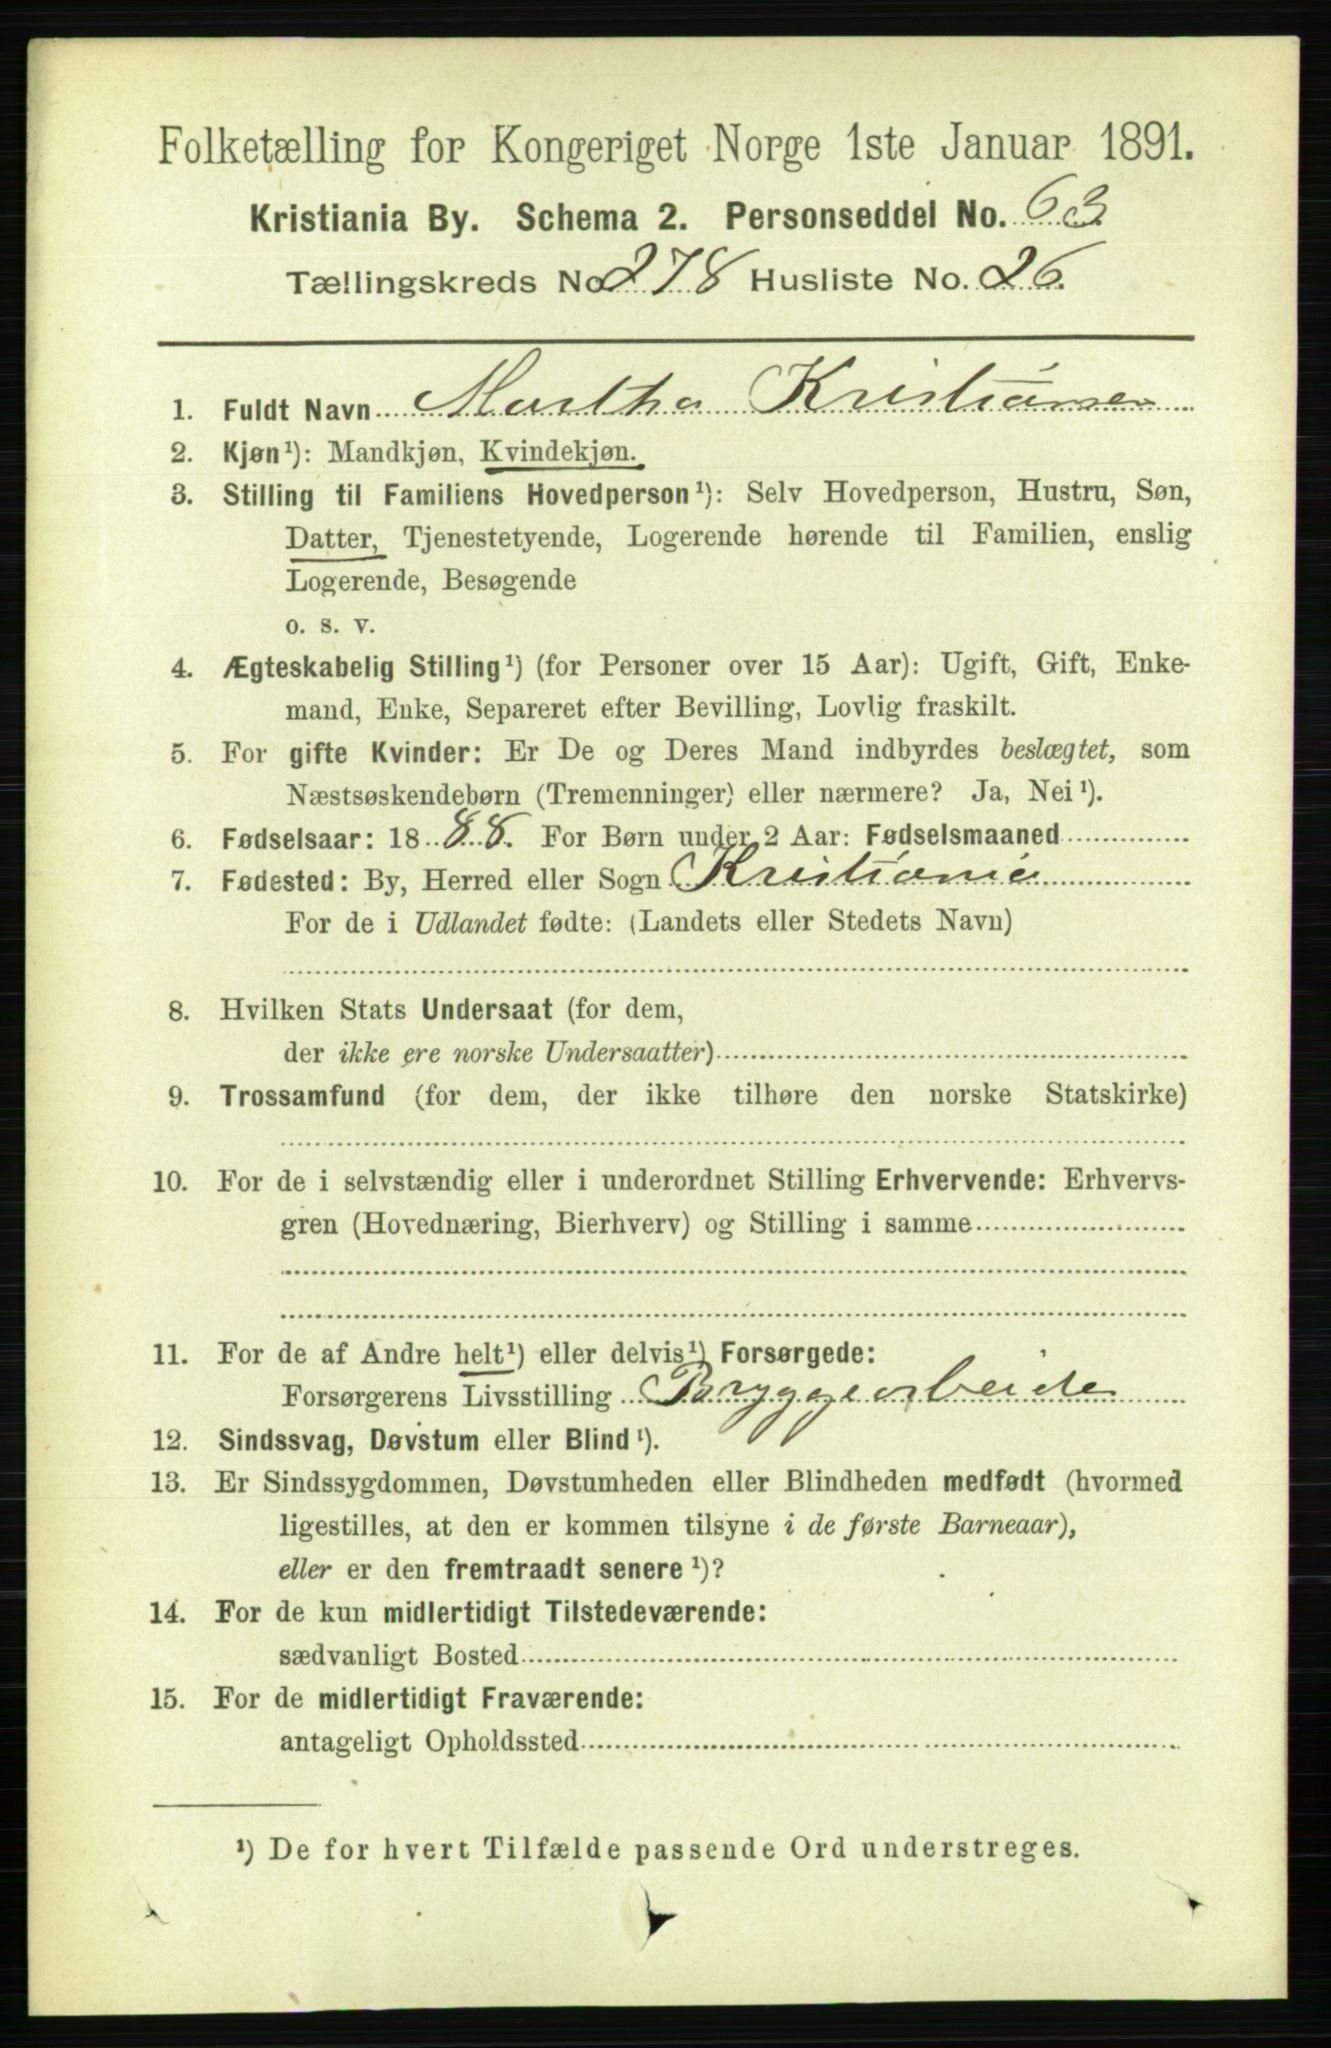 Folketælling for Kongeriget Norge 1ste Januar 1891.
Kristiania By. Schema 2. Personseddel No. 63
Tællingskreds No. 278 Husliste No. 26.
1. Fuldt Navn Martha Kristiansen
2. Kjøn¹): Mandkjøn, Kvindekjøn.
3. Stilling til Familiens Hovedperson¹): Selv Hovedperson, Hustru, Søn,
Datter, Tjenestetyende, Logerende hørende til Familien, enslig
Logerende, Besøgende
o. s. v.
4. Ægteskabelig Stilling¹) (for Personer over 15 Aar): Ugift, Gift, Enke-
mand, Enke, Separeret efter Bevilling, Lovlig fraskilt.
5. For gifte Kvinder: Er De og Deres Mand indbyrdes beslægtet, som
Næstsøskendebørn (Tremenninger) eller nærmere? Ja, Nei¹).
6. Fødselsaar: 1888. For Børn under 2 Aar: Fødselsmaaned
7. Fødested: By, Herred eller Sogn Kristiania
For de i Udlandet fødte: (Landets eller Stedets Navn)
8. Hvilken Stats Undersaat (for dem,
der ikke ere norske Undersaatter)
9. Trossamfund (for dem, der ikke tilhøre den norske Statskirke)
10. For de i selvstændig eller i underordnet Stilling Erhvervende: Erhvervs-
gren (Hovednæring, Bierhverv) og Stilling i samme
11. For de af Andre helt¹) eller delvis¹) Forsørgede:
Forsørgerens Livsstilling Bryggearbeide
12. Sindssvag, Døvstum eller Blind¹).
13. Er Sindssygdommen, Døvstumheden eller Blindheden medfødt (hvormed
ligestilles, at den er kommen tilsyne i de første Barneaar),
eller er den fremtraadt senere¹)?
14. For de kun midlertidigt Tilstedeværende:
sædvanligt Bosted
15. For de midlertidigt Fraværende:
antageligt Opholdssted
¹) De for hvert Tilfælde passende Ord understreges.